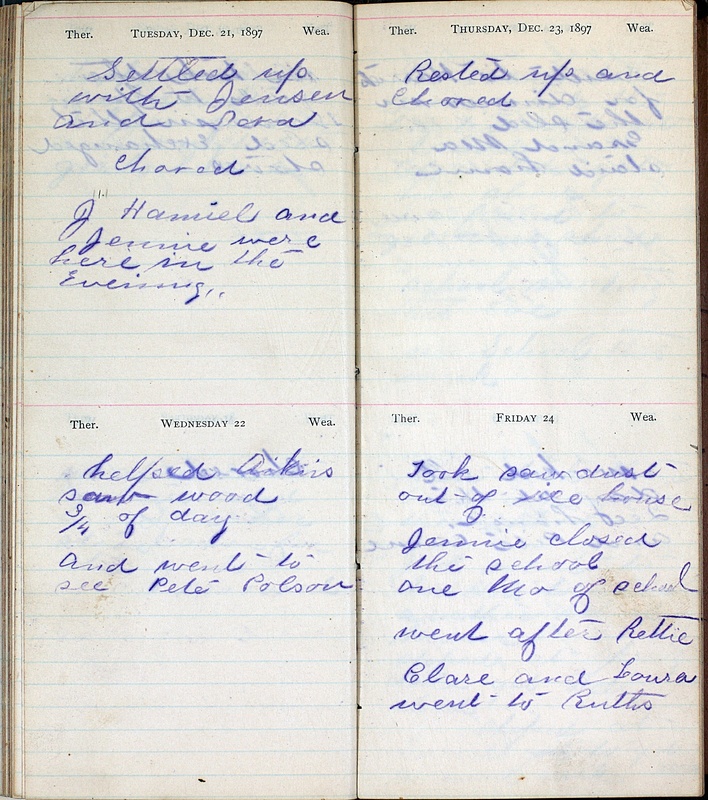 Ther. TUESDAY, DEC. 21, 1897 Wea.
Settled up
with Jensen
and Dora
Chored
J Hamiel and
Jennie were
here in the
Evening,.
Ther. WEDNESDAY 22 Wea.
helped Askins
saw wood
3/4 of day
And went to
see Pete Polson
Ther. THURSDAY, DEC. 23, 1897 Wea.
Rested up and
Chored
Ther. FRIDAY 24 Wea.
Took sawdust
out of ice house
Jennie closed
the school
one Mo of school
went after Rettie
Clare and Loura
went to Ruths